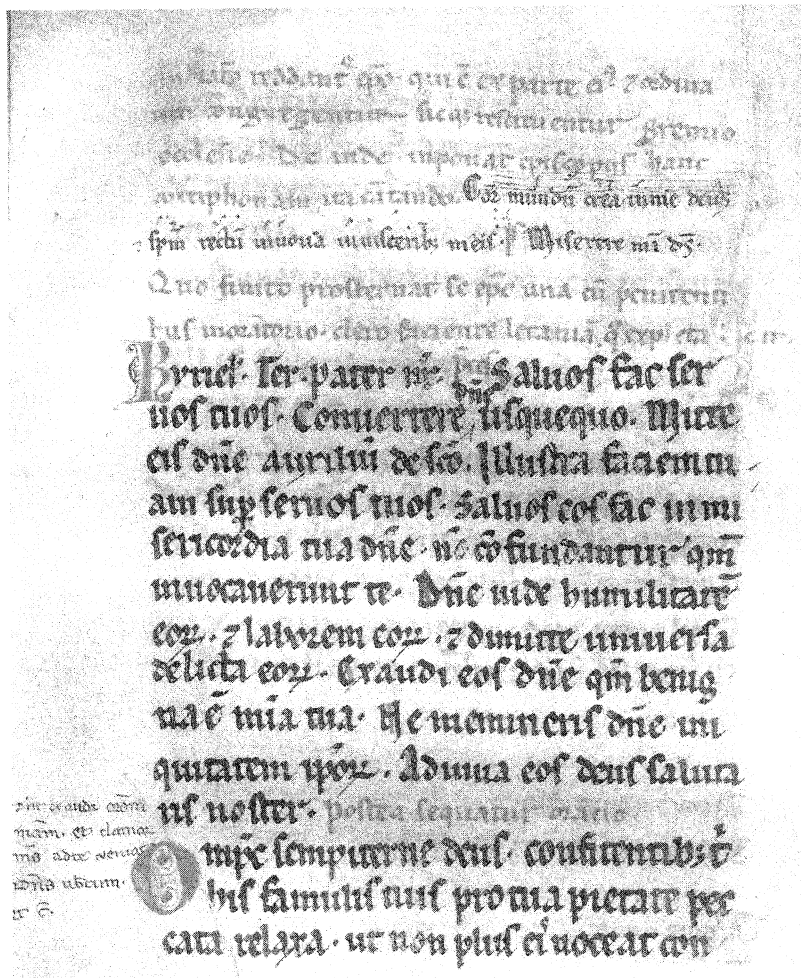 reddant᷑ qđ qui ē ex parte ei⁹ ⁊ ordina
sicq; restituentur gremio
ecclesie. Dc̄ inde inponat episcopus hanc
antiphonam ita cātando. Cor mundū crea in me deus
spm̄ rectū innoua in uiscerib; meis. p̄ Miserere mei ds̄.
Quo finito prosternat se epc̄ una cū peniten
tibus in oratorio. clero faciente letaniā. q̄ expleta
Kyriel. Ter. pater nr̄. Saluos fac ser
uos tuos. Conuertere dn̄e usquequo. Mitte
eis dn̄e auxiliū de sc̄o. Illustra faciem tu
am sup̱ seruos tuos. Saluos eos fac in mi
sericordia tua dn̄e. nō cōfundantur qm̄
inuocauerunt te. Dn̄e uide humilitatē
eoꝝ. ⁊ laborem eoꝝ. ⁊ dimitte uniuersa
delicta eoꝝ. Exaudi eos dn̄e qm̄ benig
na ē mīa tua. Ne memineris dn̄e ini
quitatem ipsoꝝ. Adiuua eos deus saluta
ris noster. Postea sequatur oratio
Omps̄ sempiterne deus. confitentib; t
bis famulis tuis pro tua pietate pec
cata relaxa. ut non plus eis noceat con
exaudi orōnē
meam. et clamor
ms̄ ad te ueniat
dn̄s uobcum.